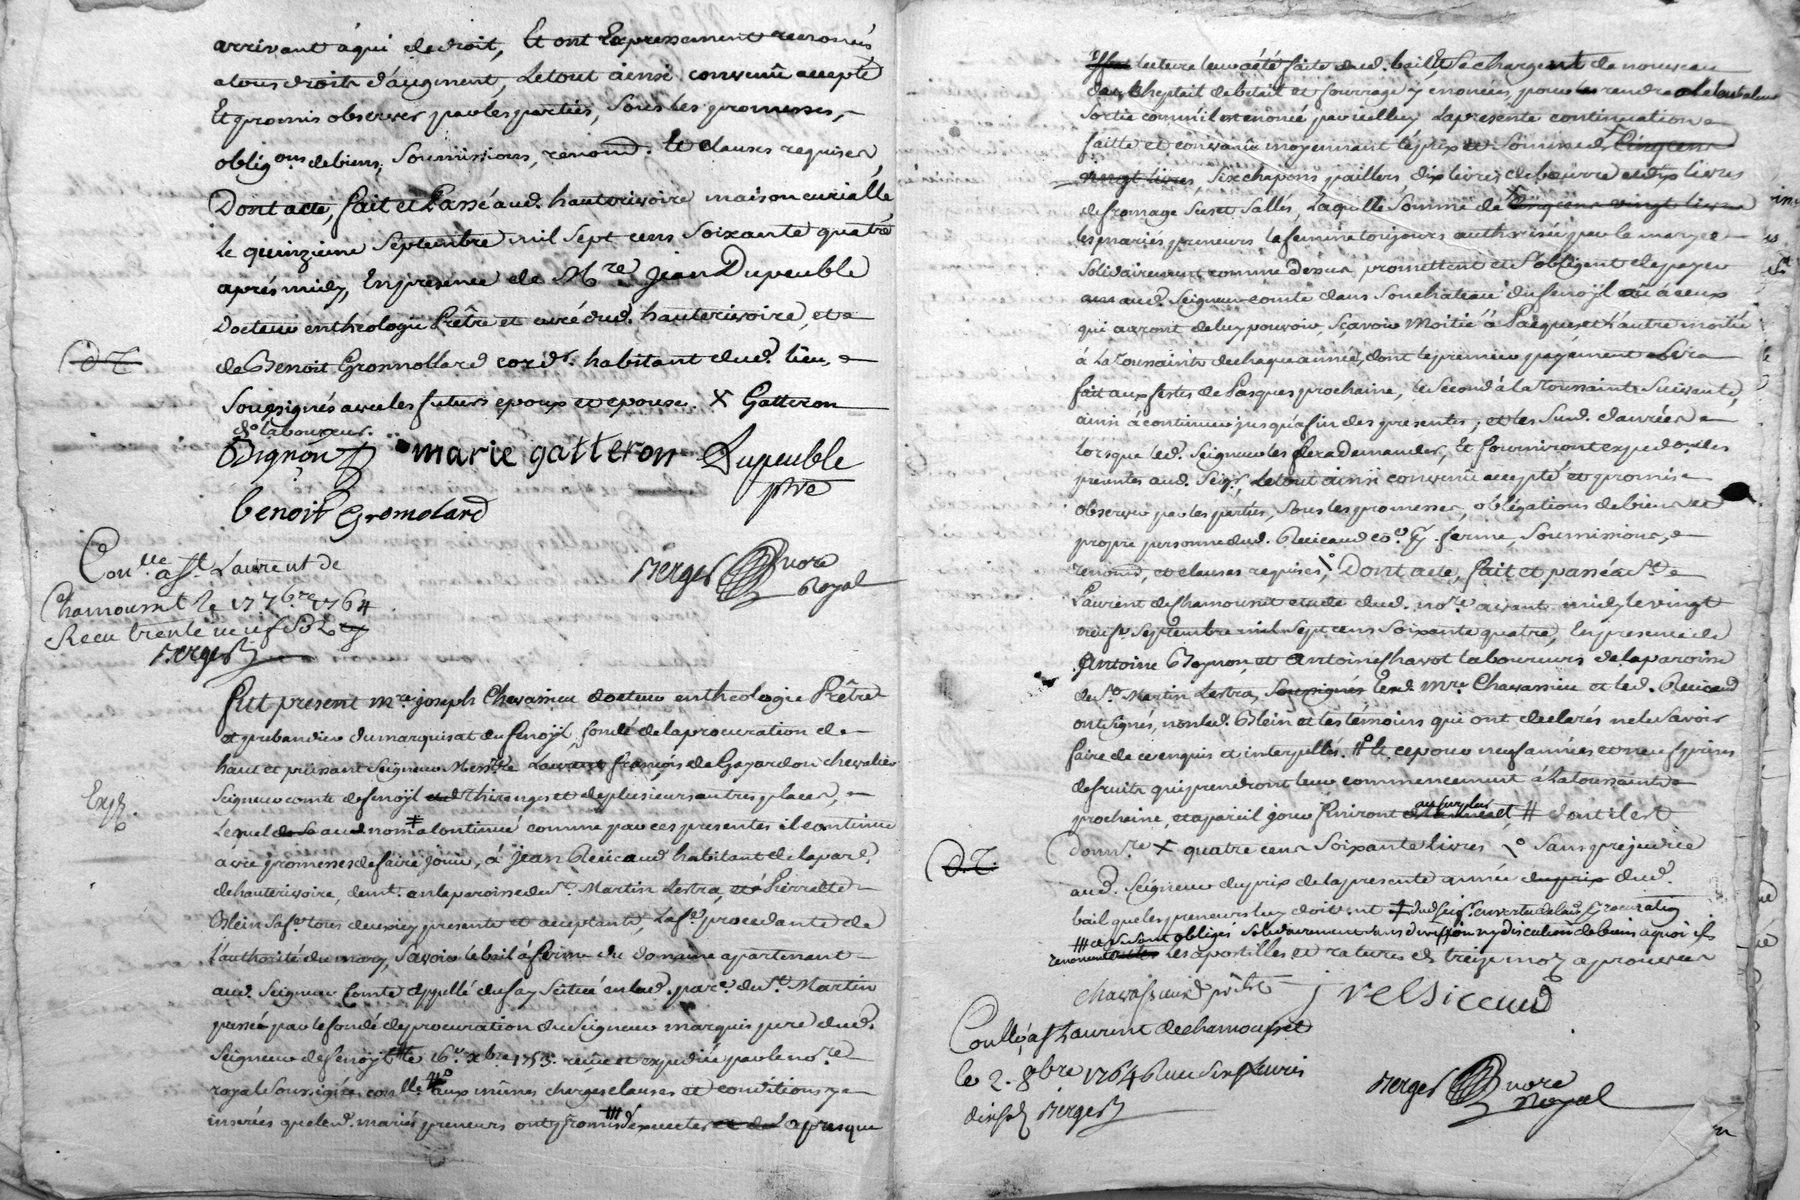 arrivant à qui de droit, Et ont Expressement renoncés
a tous droits d'augment, Le tout ainsi convenû accepté
Et promis observer par les parties, sous les promesses,
oblig.ons de biens, soumissions, renond. Et clauses requises,
Dont acte, fait et Passé aud. hauterivoire maison curialle
Le quinzieme Septembre mil Sept cens Soixante quatre
aprés midy, En presence de M.re jean Dupeuble
Docteur en theologie Prêtre et curé dud. hauterivoire, et
de Benoit Gromollard cord.r habitant dud. lieu,
Sousignés avec les futurs epoux et epouse. X Gatteron
d.o laboureur.
D.T.
Bignon marie gatteron Dupeuble
ptre
benoit Gromolard
Berger no.re Royal
Con.lle a S.t Laurent de
Chamousset le 17 7bre 1764
Recu trente neuf S.
Berger
Fut present M.re joseph Chavassieu docteur en theologie Prêtre
et prebandier du marquisat du fenoÿl, fondé de la procuration de
haut et puissant Seigneur Messire Laurent françois de Gayardon chevalier
Seigneur comte de fenoÿl et d thiranges et de plusieurs autres places,
Lequel de aud nom a continué comme par ces presentes il continue
avec promesses de faire jouir, à jean Relicaud habitant de la par.e
de hauterivoire, demt. en la paroisse de St. Martin Lestra, et à Pierrette
Blein sa fe. tous deux icy presents et acceptants, La fe. procedante de
l'authorité du mary, Savoir le bail à ferme du domaine apartenant
Exp.
aud. Seigneur Comte appellé du fay Scitué en lad. par.e de St. Martin
passé par le fondé de procuration du Seigneur marquis pere dud.
Seigneur de fenoÿl le 16.e xbre 1753. reçue et expediée par le no.re
royal Soussigné, con.lle aux mêmes charges clauses et conditions y
inserées que led. mariés preneurs ont promis d'executer et de Lapresque
lecture leur a été faite dud. bail, Se chargent de nouveau
du cheptail de betail et fourrage y enoncés, pour les rendre
Sortie comm'il est enoncé par icelluy La presente continuation
faitte et convenüe moyennant le prix et Somme de Cinq cens
vingt livres, Six chapons paillers dix livres de beurre et dix livres
de fromage Sec et Sallés, Laquelle Somme de cinq cens vingt livres
les mariés preneurs la femme toujours authorisée par le mary
Solidairement comme dessus promettent et S'obligent de payer
aud. Seigneur comte dans Son chateau du fenoÿl ou à ceux
qui auront de luy pouvoir, Scavoir Moitié à Paques et l'autre moitié
à La toussaints de chaque année, dont le premier payement Sera
fait aux fetes de Pasques prochaine, Le Second à la toussaints Suivante,
ainsi à continuer jusqu'a fin des presentes; et les Susd. danrées
lorsque led. Seigneur les fera demander, Et fourniront exped.on des
presentes aud. Seigr. Le tout ainsi convenû accepté et promis
observer par les parties, Sous les promesses, obligations de biens et
propre personne dud. Relicaud ferme, Soumissions,
renond, et clauses requises, Dont acte, fait et passé a St.
Laurent de Chamousset etude dud. no.re avant midy le vingt
neuf Septembre mil Sept cens Soixante quatre, En presence de
Antoine Bognon et Antoine Chavot laboureurs de la paroisse
de St. Martin Lestra, Sousignés led. M.re Chavassieu et led. Relicaud
ont signés, non lad. Blein et les témoins qui ont declarés ne le Savoir
faire de ce enquis et interpellés. Et ce pour neuf années et neuf prises
de fruits qui prendront leur commencement à La toussaints
prochaine, et a pareil jour finiront au surplus dont il est
D.T.
Conn.re X quatre cens Soixante livres Sans prejudice
aud. Seigneur du prix de la presente année du prix dud.
bail que les preneurs luy doivent dud. seigr. en vertu de lad. Procuration
et se sont obligés solidairement sans division ny discution de biens a quoi ils
renoncent Les apostilles et ratures de treize mots aprouvées
chavassieux prêtre j relicaud
Con.lle à S.t Laurent de chamousset
le 2. 8bre 1764 Recu
dix sols Berger
Berger no.re Royal